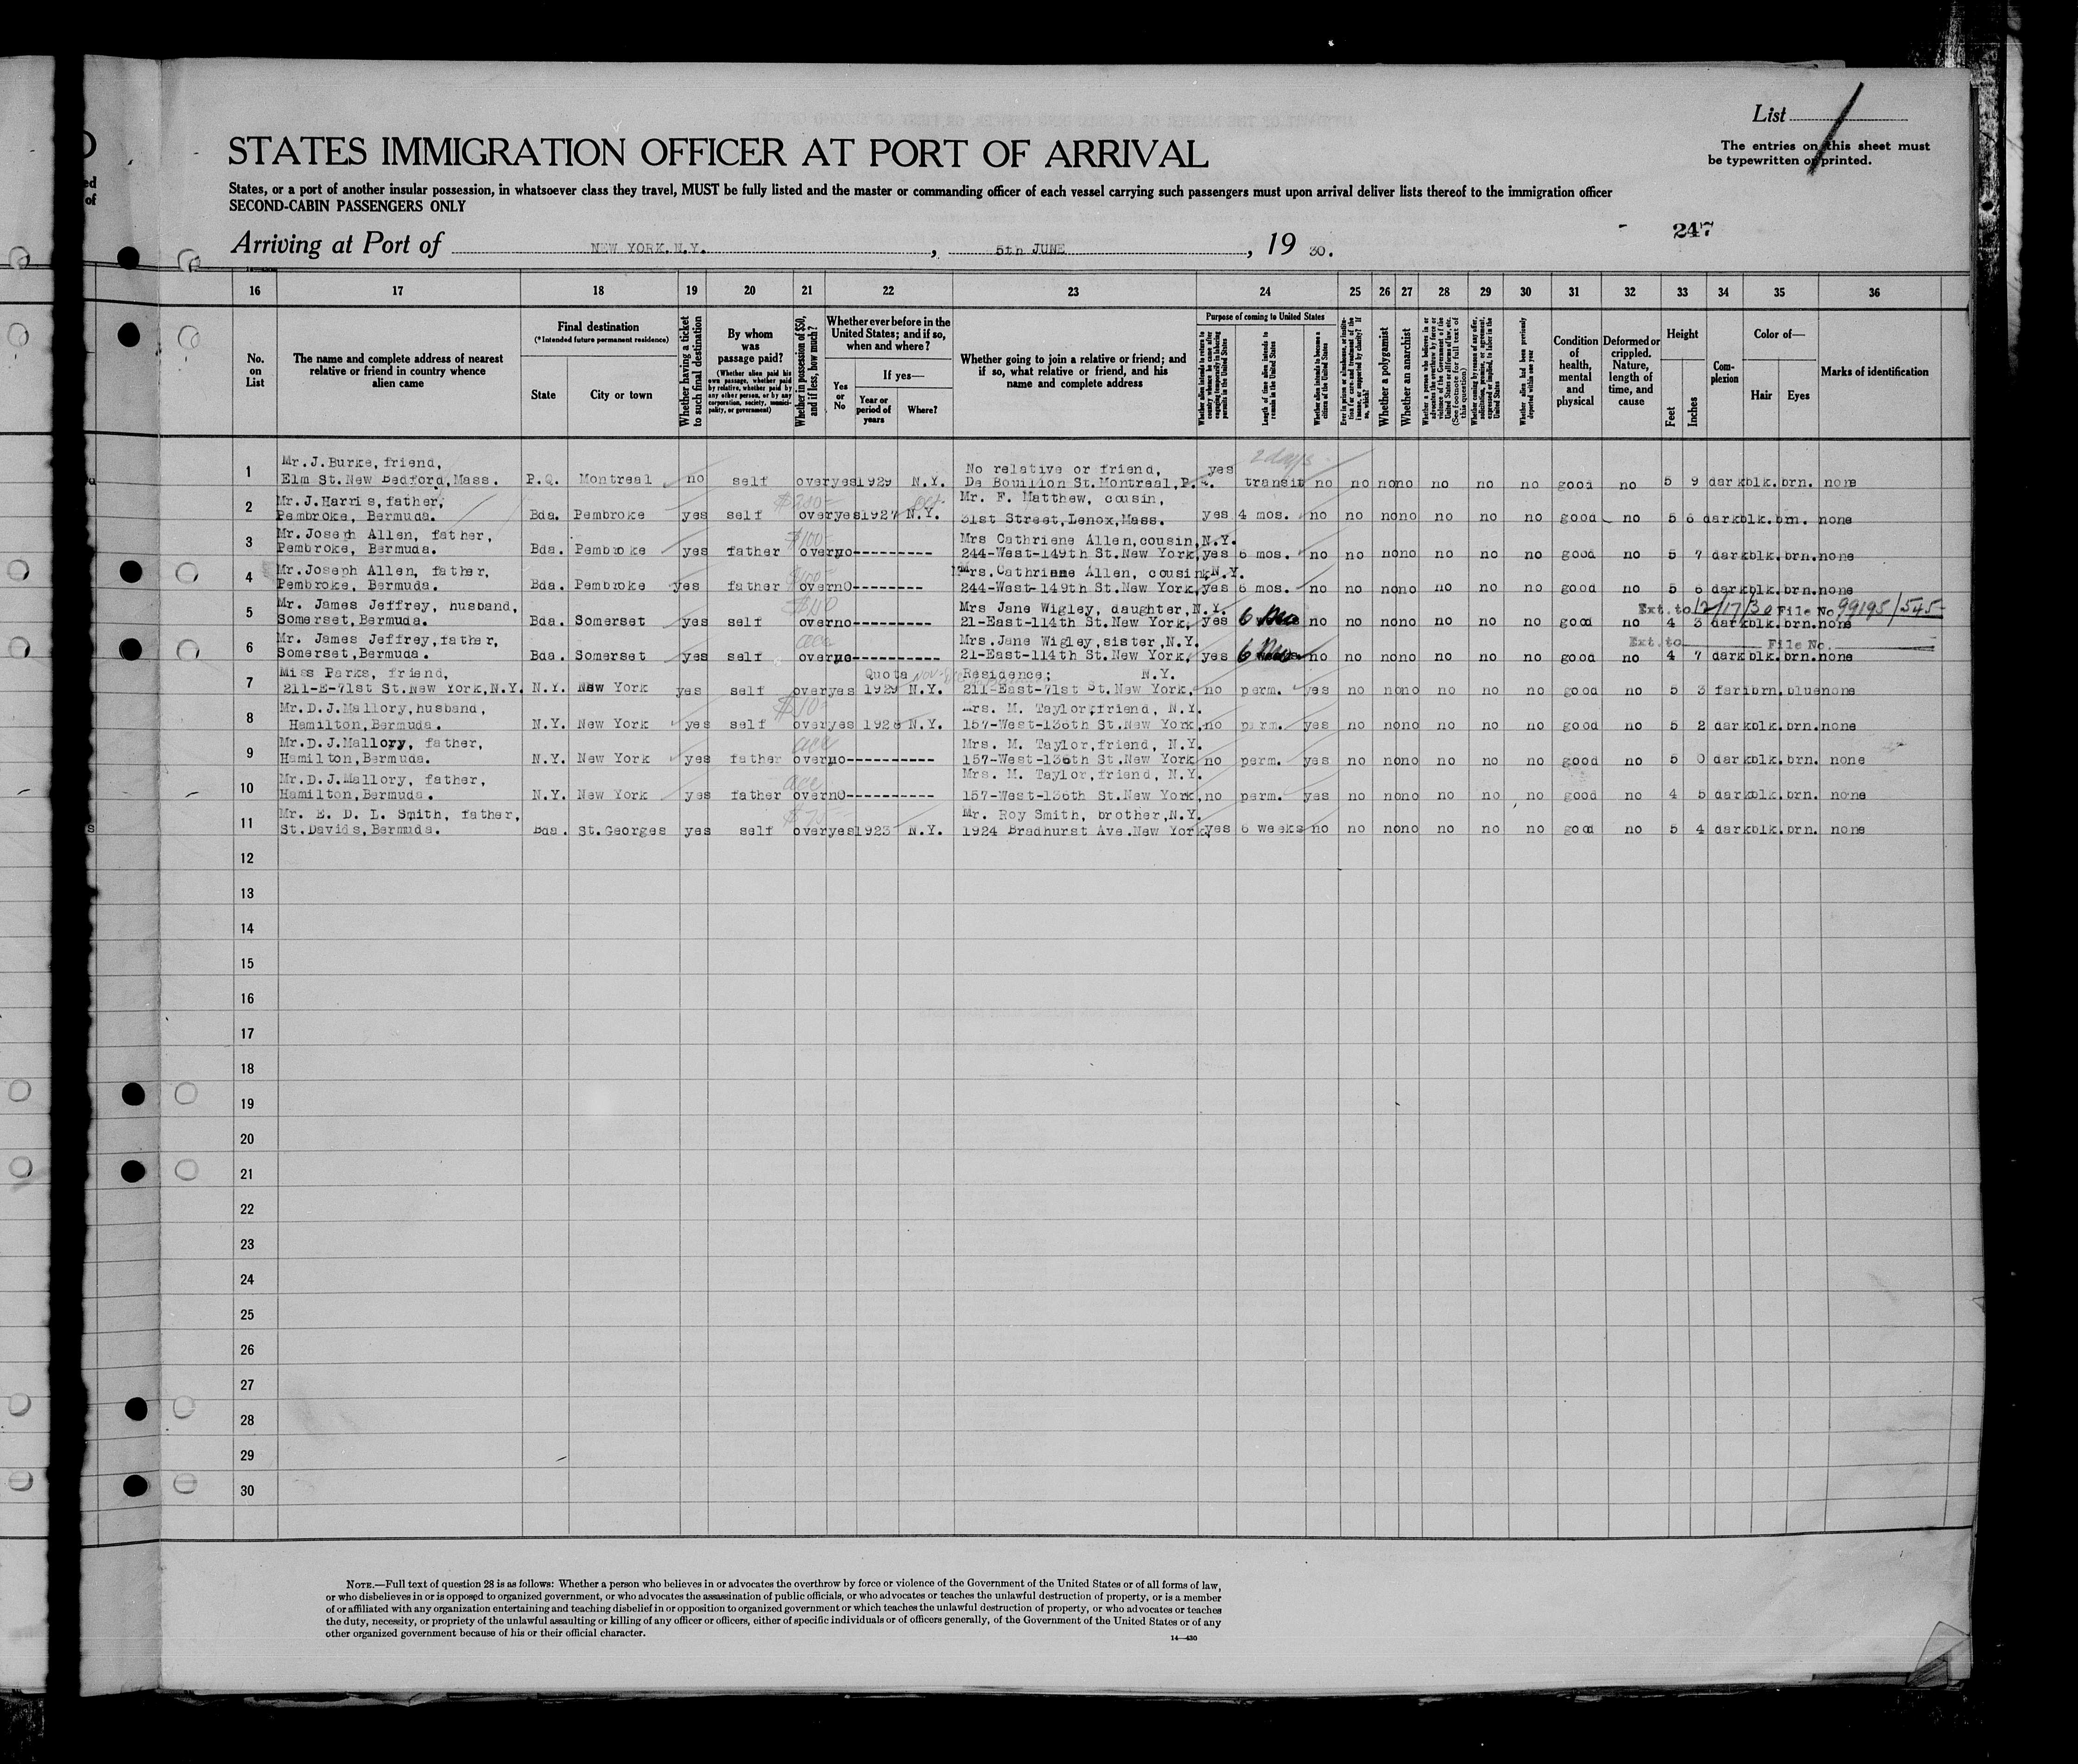 List
The entries on this sheet must
be typewritten or printed.
STATES IMMIGRATION OFFICER AT PORT OF ARRIVAL
States, or a port of another insular possession, in whatsoever class they travel, MUST be fully listed and the master or commanding officer of each vessel carrying such passengers must upon arrival deliver lists thereof to the immigration officer
SECOND-CABIN PASSENGERS ONLY
247
Arriving at Port of NEW YORK.N.Y. , 5th JUNE , 19 30.
16 17 18 19 20 21 22 23 24 25 26 27 28 29 30 31 32 33 34 35 36
No. on List
The name and complete address of nearest relative or friend in country whence alien came
Final destination
(*Intended future permanent residence)
State City or town
Whether having a ticket to such final destination
By whom was passage paid?
(Whether alien paid his own passage, whether paid by relative, whether paid by any other person, or by any corporation, society, municipality, or government)
Whether in possession of $50, and if less, how much?
Whether ever before in the United States; and if so, when and where?
Yes or No
If yes—
Year or period of years
Where?
Whether going to join a relative or friend; and if so, what relative or friend, and his name and complete address
Purpose of coming to United States
Length of time alien intends to remain in the United States
Whether alien intends to become a citizen of the United States
Whether a polygamist
Whether an anarchist
Condition of health, mental and physical
Deformed or crippled. Nature, length of time, and cause
Height
Feet Inches
Complexion
Color of—
Hair Eyes
Marks of identification
2 days
1 Mr.J.Burke,friend, No relative or friend, yes
Elm St.New Bedford,Mass. P.Q. Montreal no self over yes 1929 N.Y. De Bouillon St.Montreal,P.Q. transit no no no no no no no good no 5 9 dark blk. brn. none
2 Mr.J.Harris,father, Mr. F. Matthew, cousin,
Pembroke, Bermuda. Bda. Pembroke yes self over yes 1927 N.Y. 31st Street,Lenox,Mass. yes 4 mos. no no no no no no no good no 5 6 dark blk. brn. none
3 Mr.Joseph Allen, father, $100 Mrs Cathriene Allen,cousin,N.Y.
Pembroke, Bermuda. Bda. Pembroke yes father over no---------- 244-West-149th St.New York, yes 6 mos. no no no no no no no good no 5 7 dark blk. brn. none
4 Mr.Joseph Allen, father, Mrs.Cathriene Allen, cousin,N.Y.
Pembroke, Bermuda. Bda. Pembroke yes father over no--------- 244-West-149th St.New York, yes 6 mos. no no no no no no no good no 5 6 dark blk. brn. none
5 Mr. James Jeffrey, husband, Mrs Jane Wigley, daughter,N.Y. Ext.to 12/17/30 File No. 99195/545
Somerset,Bermuda. Bda. Somerset yes self over no---------- 21-East-114th St.New York, yes 6 mos no no no no no no no good no 4 3 dark blk. brn. none
6 Mr. James Jeffrey,father, acc Mrs.Jane Wigley,sister,N.Y. Ext.to File No.
Somerset,Bermuda. Bda. Somerset yes self over no----------- 21-East-114th St.New York, yes 6 mos no no no no no no no good no 4 7 dark blk. brn. none
7 Miss Parks, friend, Quota Residence; N.Y.
211-E-71st St.New York,N.Y. N.Y. New York yes self over yes 1929 N.Y. 211-East-71st St.New York, no perm. yes no no no no no no good no 5 3 fair brn. blue none
8 Mr.D.J.Mallory,husband, Mrs. M. Taylor,friend, N.Y.
Hamilton,Bermuda. N.Y. New York yes self over yes 1928 N.Y. 157-West-136th St.New York, no perm. yes no no no no no no good no 5 2 dark blk. brn. none
9 Mr.D.J.Mallory, father, acc Mrs. M. Taylor,friend, N.Y.
Hamilton,Bermuda. N.Y. New York yes father over no----------- 157-West-136th St.New York no perm. yes no no no no no no good no 5 0 dark blk. brn. none
10 Mr.D.J.Mallory, father, acc Mrs. M. Taylor,friend, N.Y.
Hamilton,Bermuda. N.Y. New York yes father over no---------- 157-West-136th St.New York, no perm. yes no no no no no no good no 4 5 dark blk. brn. none
11 Mr. E. D. L. Smith, father, Mr. Roy Smith, brother,N.Y.
St.Davids,Bermuda. Bda. St.Georges yes self over yes 1923 N.Y. 1924 Bradhurst Ave.New York, yes 6 weeks no no no no no no no good no 5 4 dark blk. brn. none
12
13
14
15
16
17
18
19
20
21
22
23
24
25
26
27
28
29
30
NOTE.—Full text of question 28 is as follows: Whether a person who believes in or advocates the overthrow by force or violence of the Government of the United States or of all forms of law,
or who disbelieves in or is opposed to organized government, or who advocates the assassination of public officials, or who advocates or teaches the unlawful destruction of property, or is a member
of or affiliated with any organization entertaining and teaching disbelief in or opposition to organized government or which teaches the unlawful destruction of property, or who advocates or teaches
the duty, necessity, or propriety of the unlawful assaulting or killing of any officer or officers, either of specific individuals or of officers generally, of the Government of the United States or of any
other organized government because of his or their official character.
14—430